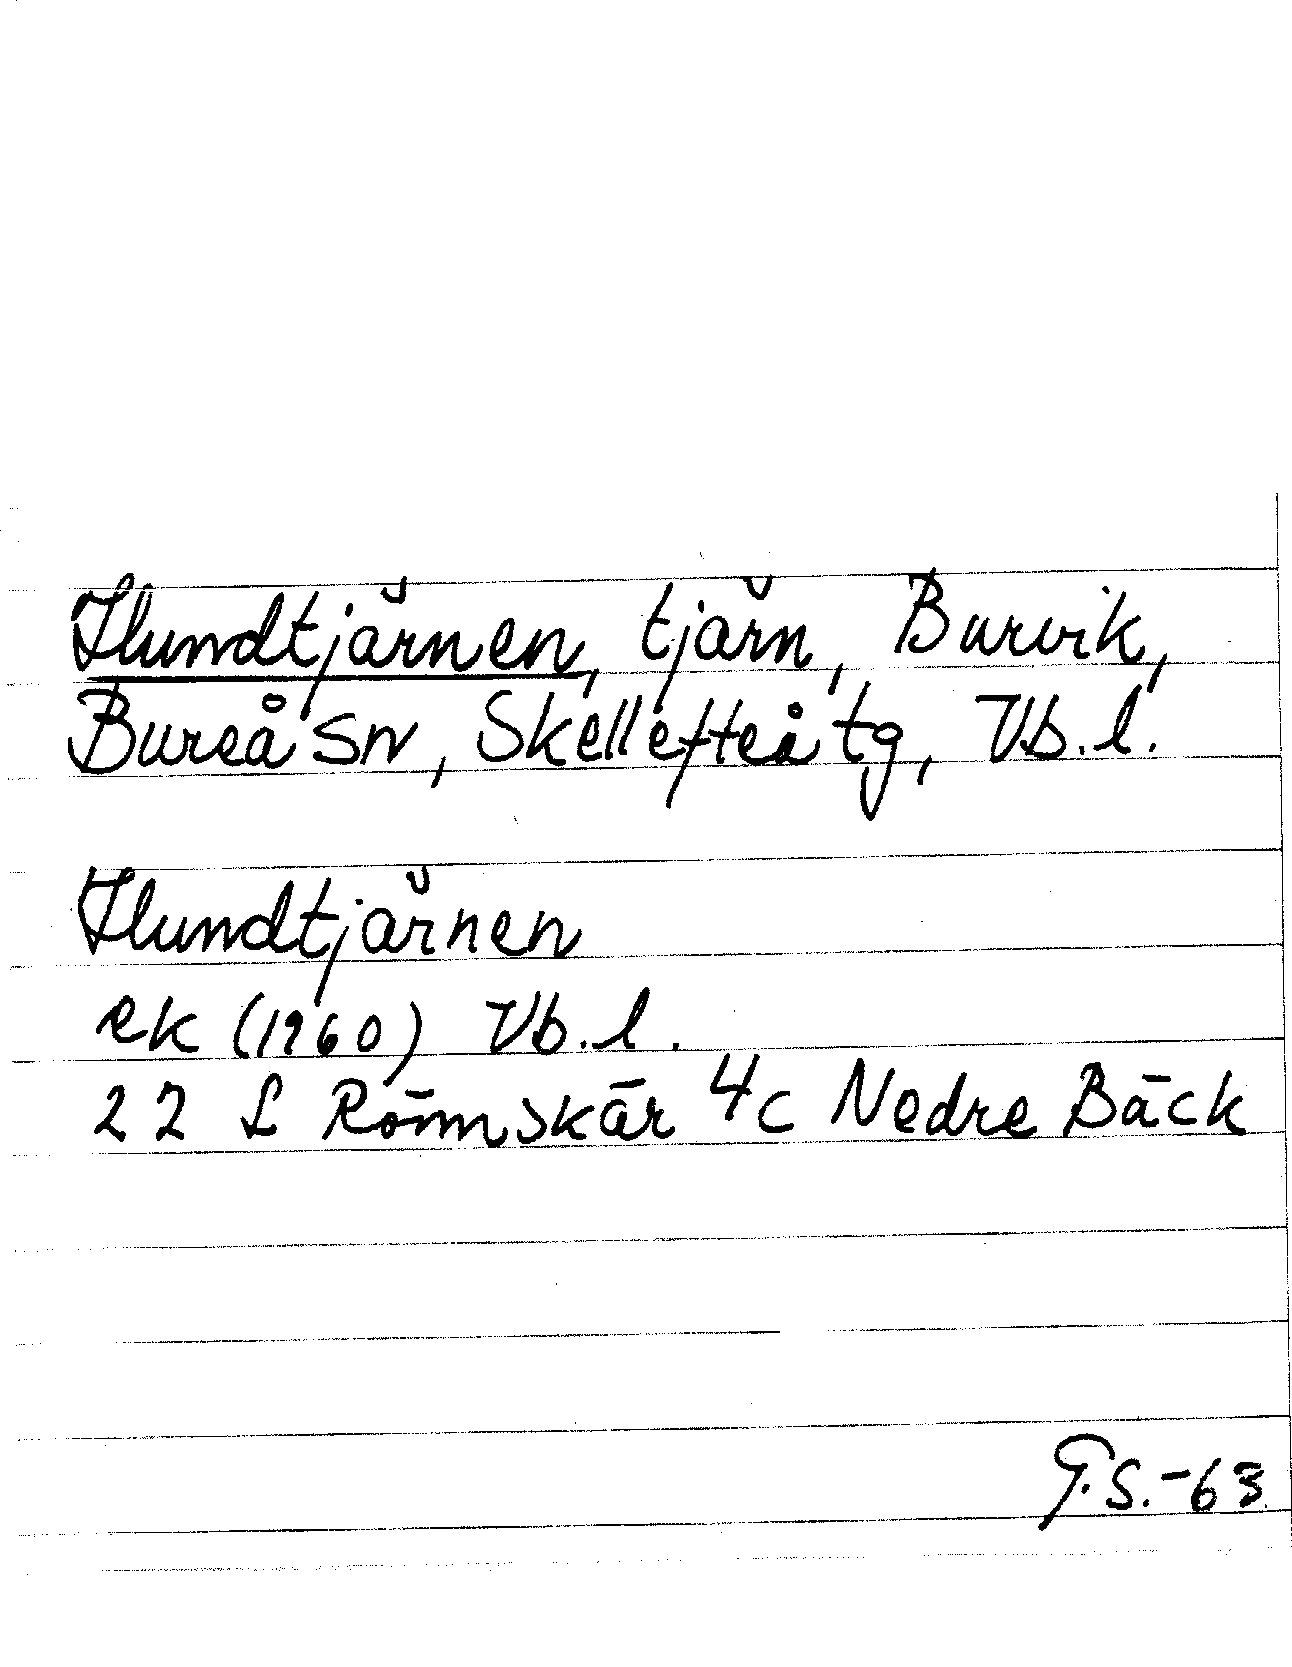 Hundtjärnen, tjärn, Burvik,
Bureå sn, Skellefteå tg, Vb.l.
Hundtjärnen
ek (1960) Vb.l.
22 L Rönnskär 4c Nedre Bäck
G.S.-63